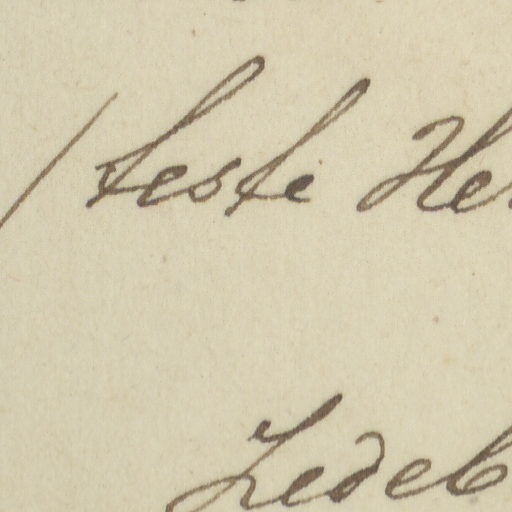 / teste He
Ledeb